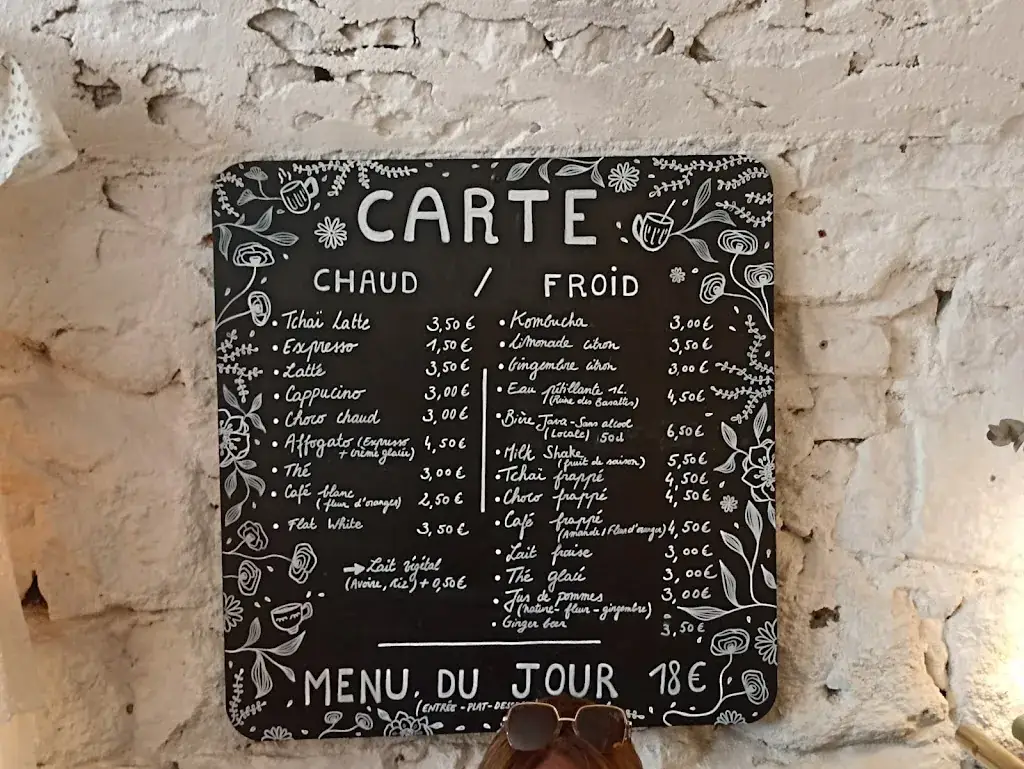 CARTE
CHAUD / FROID
• Tchaï Latte 3,50 €
• Expresso 1,50 €
• Latte 3,50 €
• Cappucino 3,00 €
• Choco chaud 3,00 €
• Affogato (Expresso 4,50 €
+ crème glacée)
• Thé 3,00 €
• Café blanc
(fleur d'oranger) 2,50 €
• Flat White 3,50 €
→ Lait végétal
(Avoine, riz) + 0,50 €
• Kombucha 3,00 €
• Limonade citron 3,50 €
• Gingembre citron 3,00 €
• Eau pétillante 1L.
(Reine des Basaltes) 4,50 €
• Bière Java - Sans alcool
(Locale) 50cl 6,50 €
• Milk Shake
(fruit de saison) 5,50 €
• Tchaï frappé 4,50 €
• Choco frappé 4,50 €
• Café frappé
(Amande, Fleur d'oranger) 4,50 €
• Lait fraise 3,00 €
• Thé glacé 3,00 €
• Jus de pommes 3,00 €
(nature - fleur - gingembre)
• Ginger beer 3,50 €
MENU DU JOUR 18 €
(ENTRÉE - PLAT -